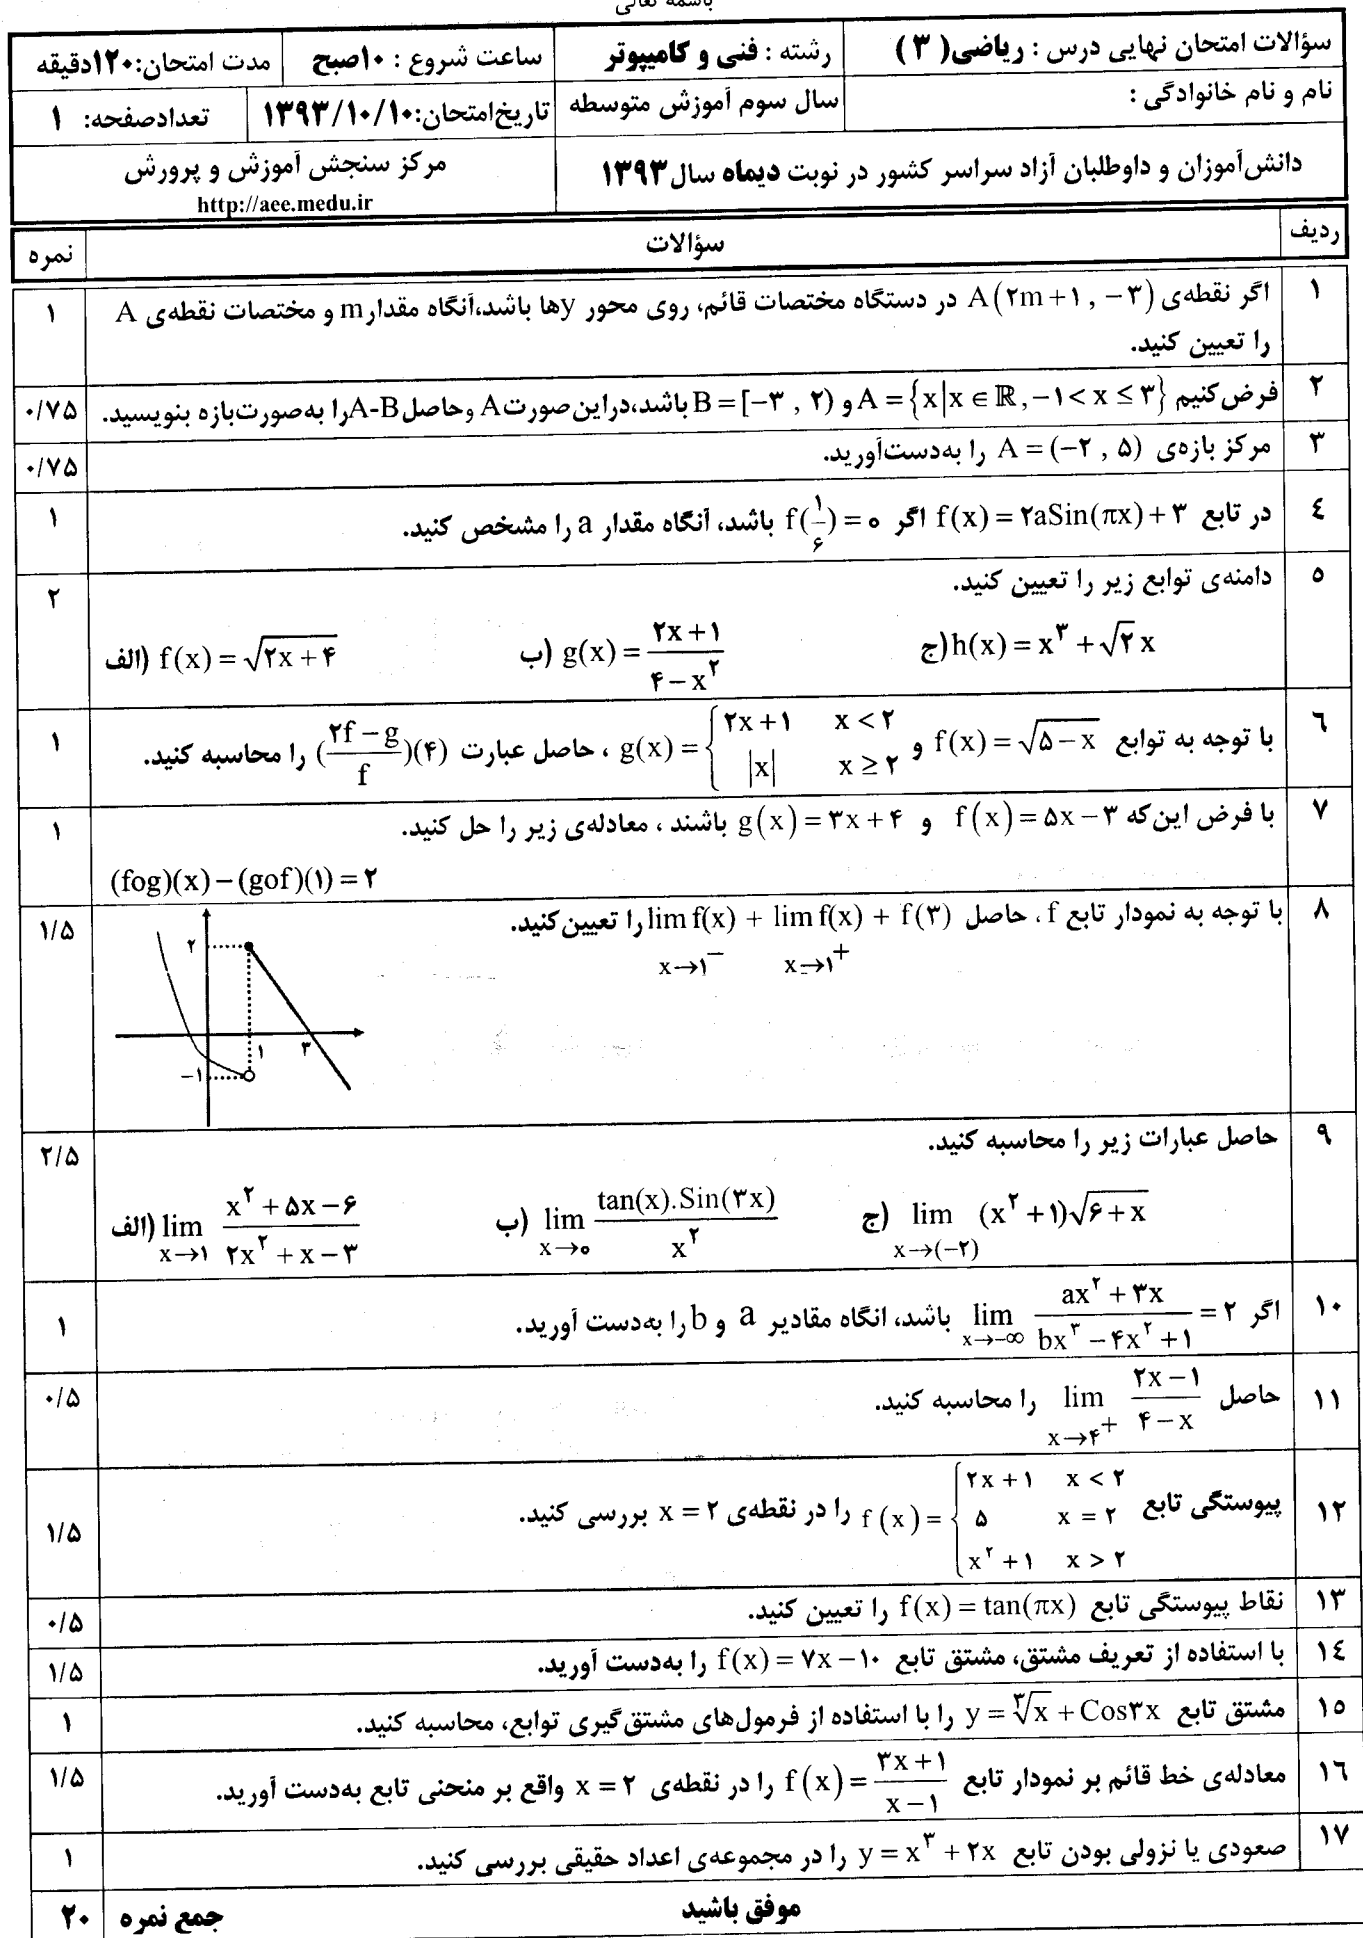 باسمه تعالی
سؤالات امتحان نهایی درس : ریاضی( ۳ )
رشته : فنی و کامیپوتر
ساعت شروع : ۱۰صبح
مدت امتحان:۱۲۰دقیقه
نام و نام خانوادگی :
سال سوم آموزش متوسطه
تاریخ‌امتحان:۱۳۹۳/۱۰/۱۰
تعدادصفحه: ۱
دانش‌آموزان و داوطلبان آزاد سراسر کشور در نوبت دیماه سال۱۳۹۳
مرکز سنجش آموزش و پرورش
http://aee.medu.ir
ردیف سؤالات نمره
۱ اگر نقطه‌ی A(۲m+۱ , −۳) در دستگاه مختصات قائم، روی محور yها باشد،آنگاه مقدار m و مختصات نقطه‌ی A ۱
را تعیین کنید.
۲ فرض‌کنیم A = {x|x ∈ ℝ , −۱ < x ≤ ۳} و B = [−۳ , ۲) باشد،دراین صورت A وحاصل A-B را به‌صورت‌بازه بنویسید. ۰/۷۵
۳ مرکز بازه‌ی A = (−۲ , ۵) را به‌دست‌آورید. ۰/۷۵
٤ در تابع f(x) = ۲aSin(πx) + ۳ اگر f(۱/۶) = ۰ باشد، آنگاه مقدار a را مشخص کنید. ۱
۵ دامنه‌ی توابع زیر را تعیین کنید. ۲
الف) f(x) = √(۲x + ۴) ب) g(x) = (۲x + ۱)/(۴ − x^۲) ج) h(x) = x^۳ + √۲ x
٦ با توجه به توابع f(x) = √(۵ − x) و g(x) = { ۲x + ۱ x < ۲ ; |x| x ≥ ۲ ، حاصل عبارت ((۲f − g)/f)(۴) را محاسبه کنید. ۱
۷ با فرض این‌که f(x) = ۵x − ۳ و g(x) = ۳x + ۴ باشند ، معادله‌ی زیر را حل کنید. ۱
(fog)(x) − (gof)(۱) = ۲
۸ با توجه به نمودار تابع f ، حاصل lim f(x) + lim f(x) + f(۳) را تعیین‌کنید. ۱/۵
x→۱⁻ x→۱⁺
۲
۱ ۳
−۱
۹ حاصل عبارات زیر را محاسبه کنید. ۲/۵
الف) lim x→۱ (x^۲ + ۵x − ۶)/(۲x^۲ + x − ۳) ب) lim x→۰ (tan(x).Sin(۳x))/x^۲ ج) lim x→(−۲) (x^۲ + ۱)√(۶ + x)
۱۰ اگر lim x→−∞ (ax^۲ + ۳x)/(bx^۳ − ۴x^۲ + ۱) = ۲ باشد، انگاه مقادیر a و b را به‌دست آورید. ۱
۱۱ حاصل lim x→۴⁺ (۲x − ۱)/(۴ − x) را محاسبه کنید. ۰/۵
۱۲ پیوستگی تابع f(x) = { ۲x + ۱ x < ۲ ; ۵ x = ۲ ; x^۲ + ۱ x > ۲ را در نقطه‌ی x = ۲ بررسی کنید. ۱/۵
۱۳ نقاط پیوستگی تابع f(x) = tan(πx) را تعیین کنید. ۰/۵
۱٤ با استفاده از تعریف مشتق، مشتق تابع f(x) = ۷x − ۱۰ را به‌دست آورید. ۱/۵
۱۵ مشتق تابع y = ∛x + Cos۳x را با استفاده از فرمول‌های مشتق‌گیری توابع، محاسبه کنید. ۱
۱٦ معادله‌ی خط قائم بر نمودار تابع f(x) = (۳x + ۱)/(x − ۱) را در نقطه‌ی x = ۲ واقع بر منحنی تابع به‌دست آورید. ۱/۵
۱۷ صعودی یا نزولی بودن تابع y = x^۳ + ۲x را در مجموعه‌ی اعداد حقیقی بررسی کنید. ۱
موفق باشید جمع نمره ۲۰